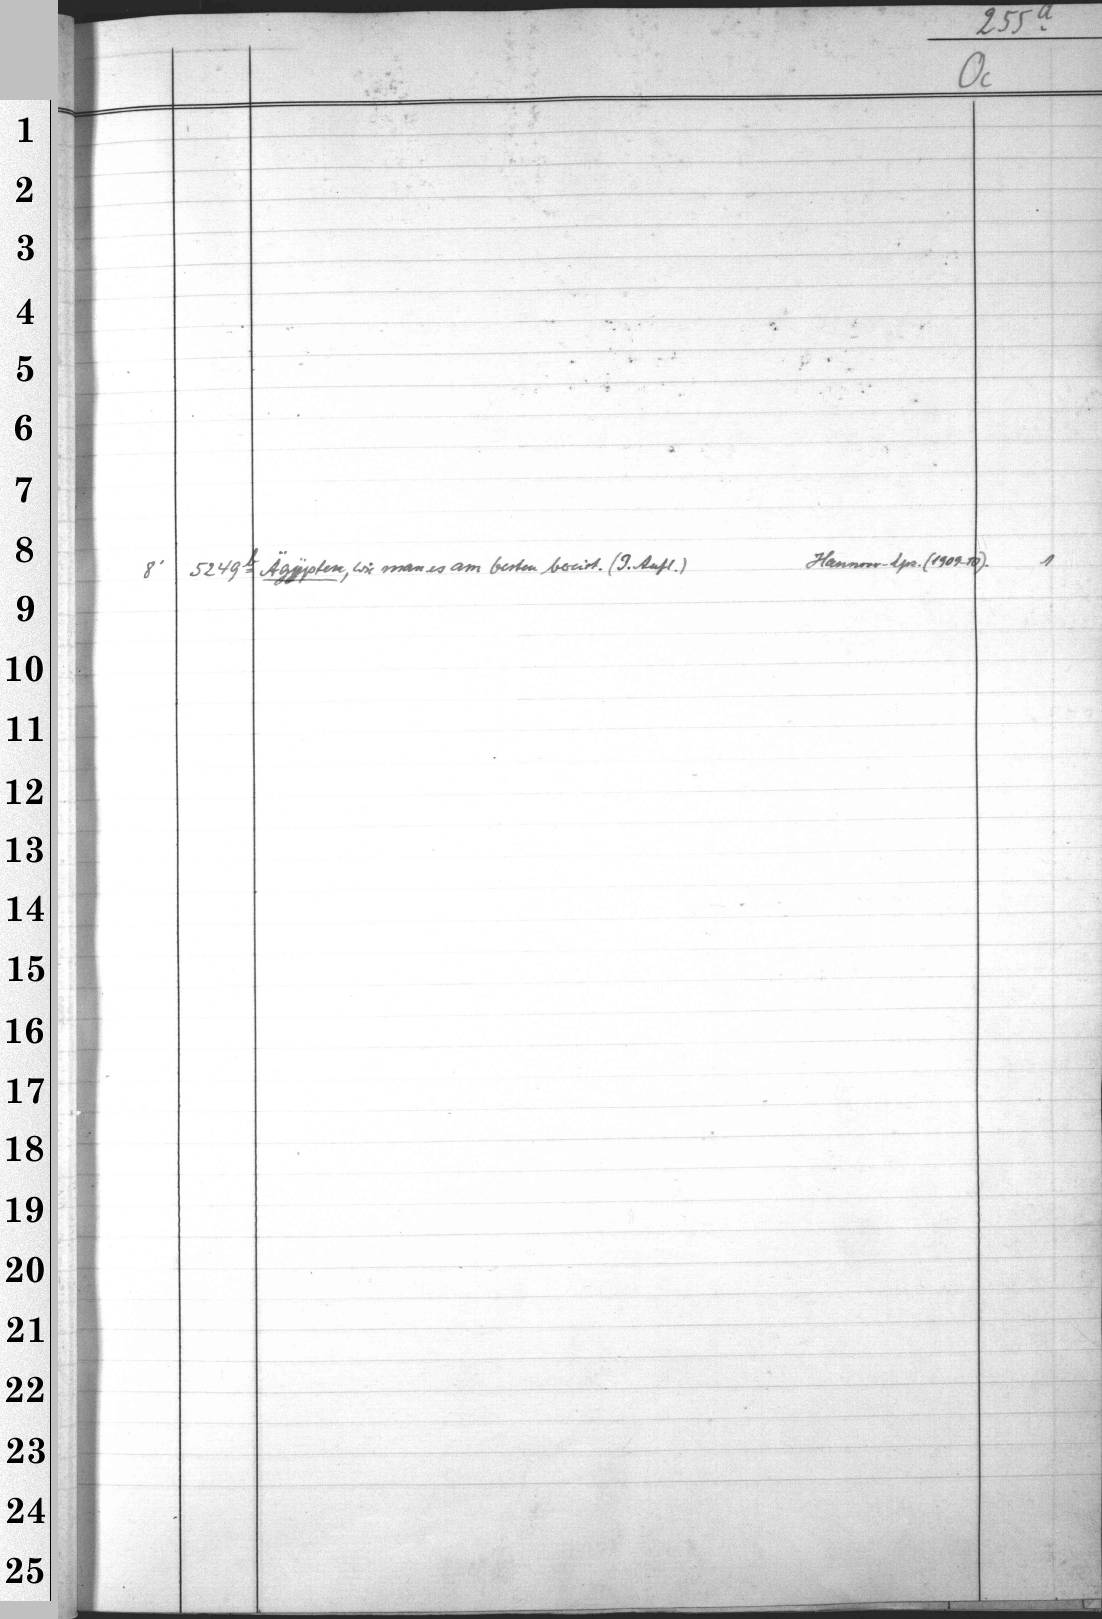 255a
Oc
1
2
3
4
5
6
7
8
8' 5249b Ägypten, wie man es am besten bereist. (I. Aufl.) Hannover-Lpz. (1909-10). 1
9
10
11
12
13
14
15
16
17
18
19
20
21
22
23
24
25